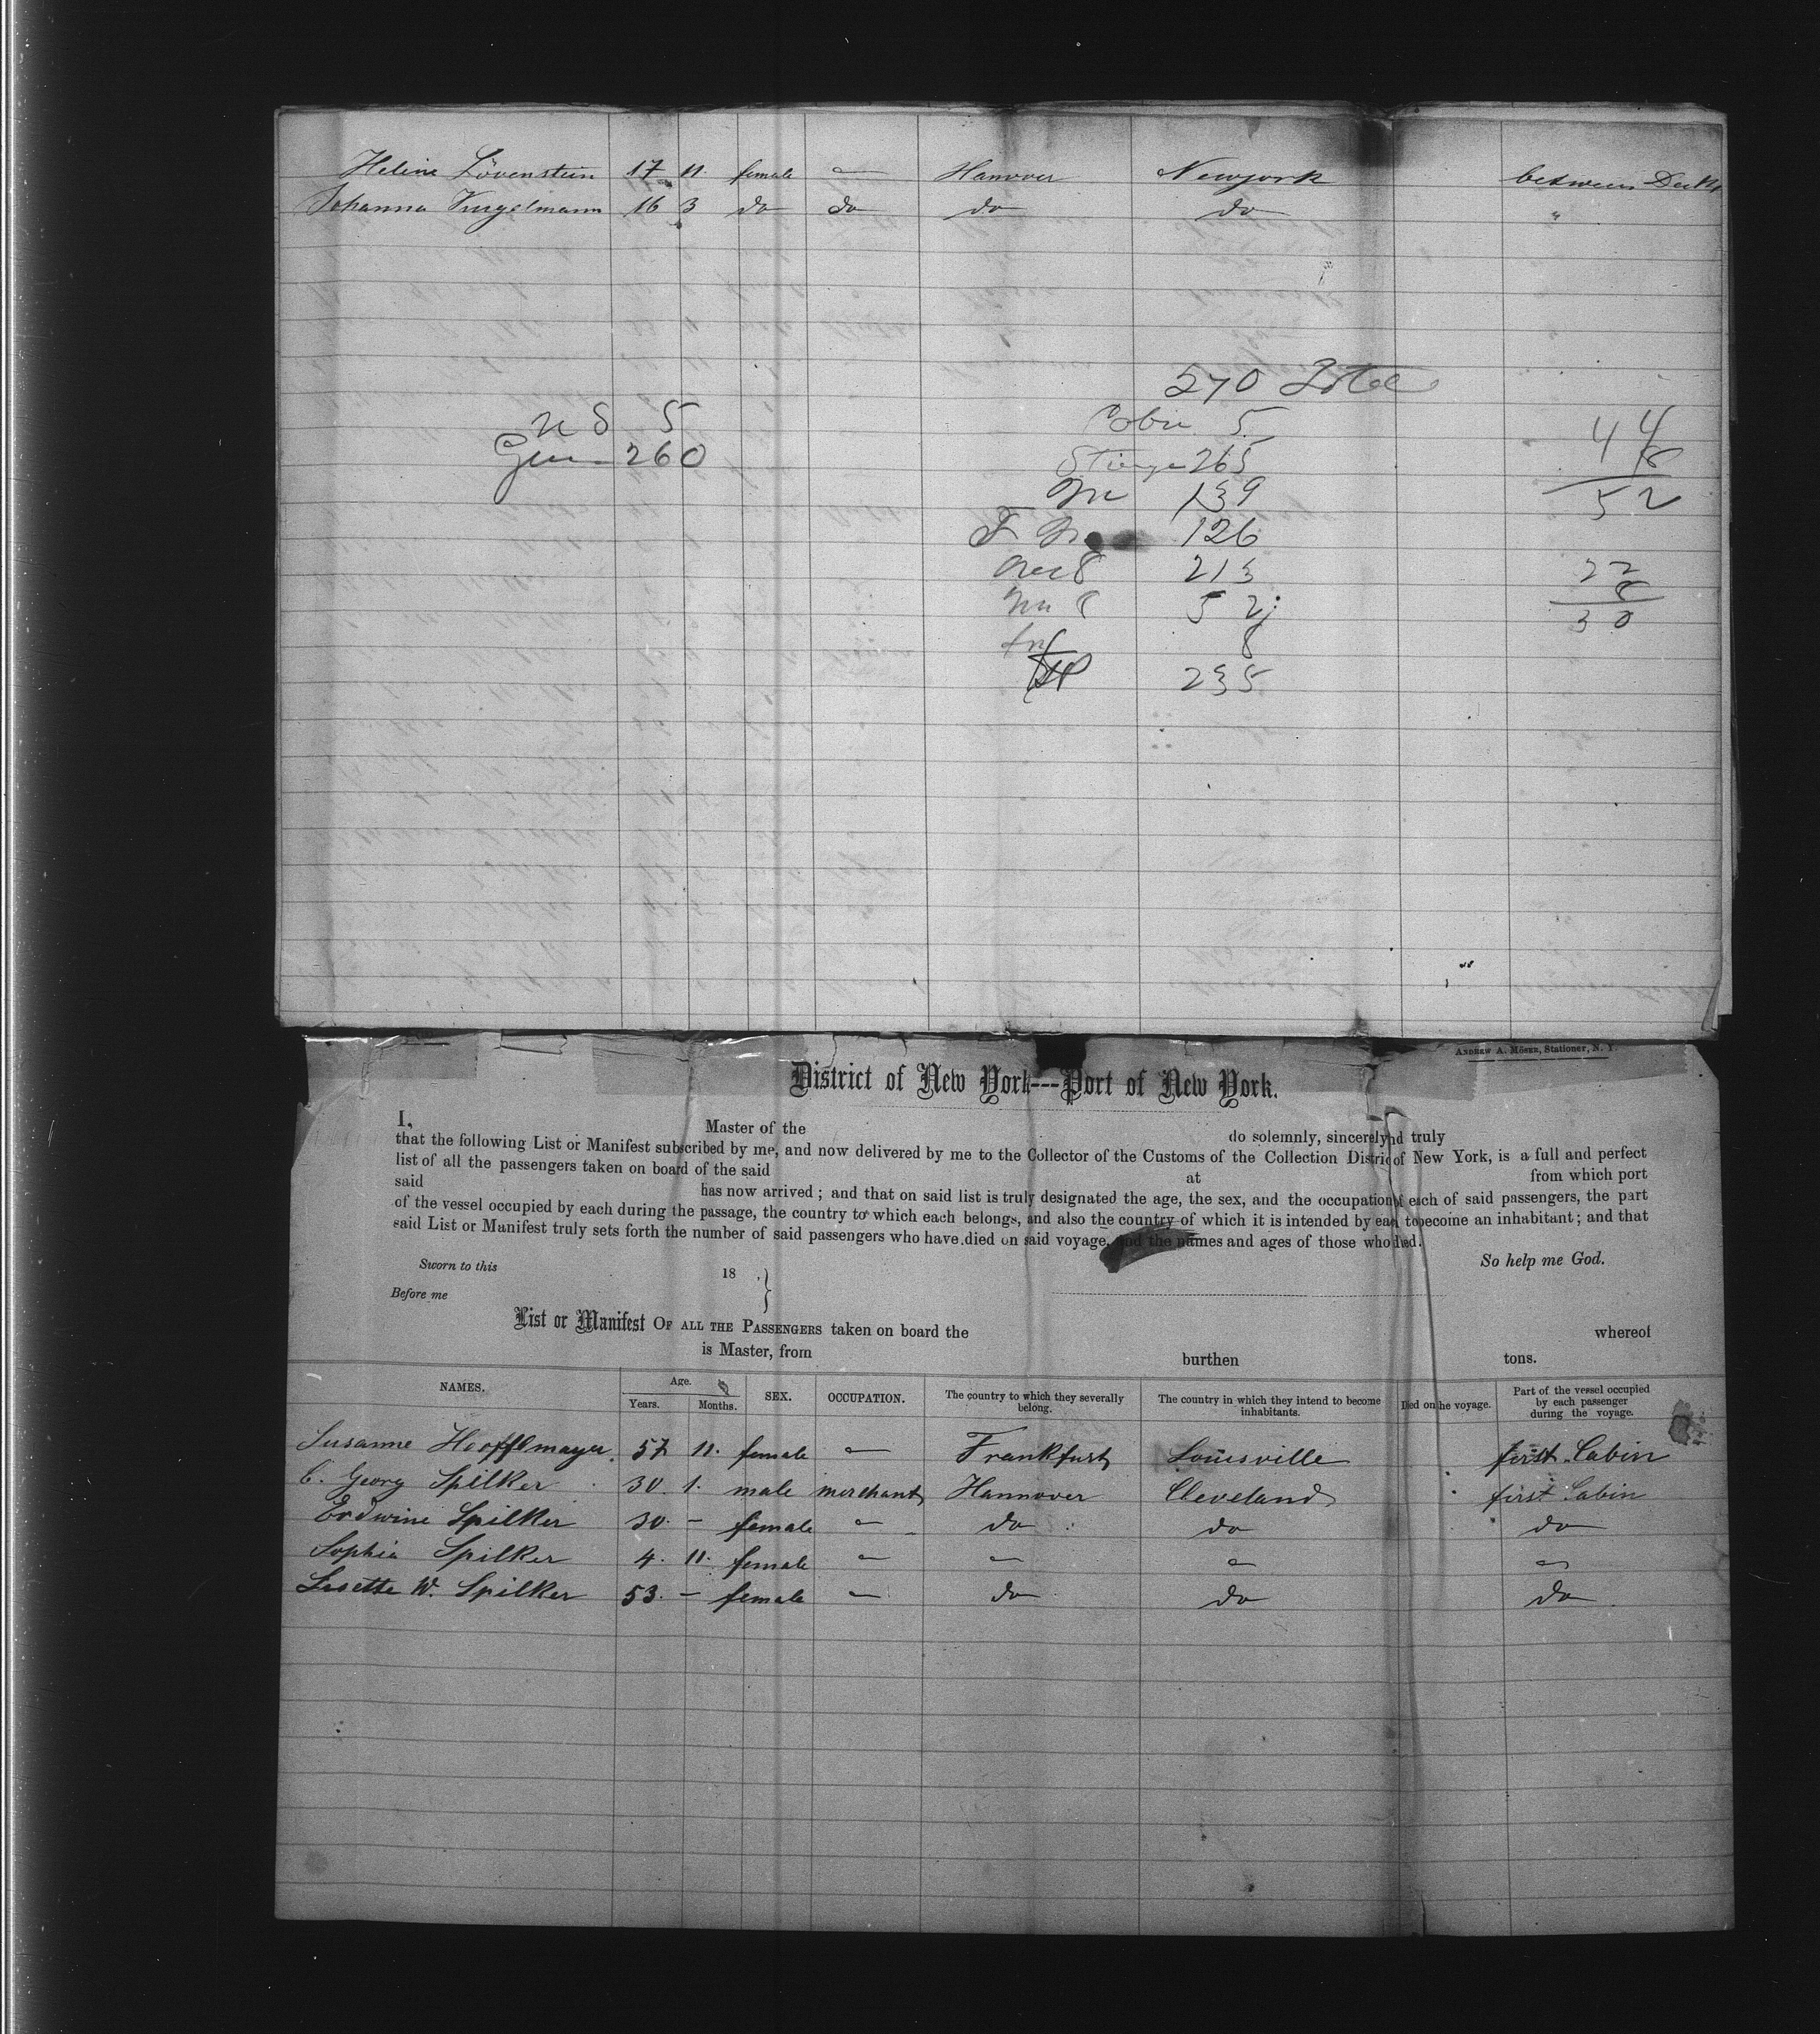 Heline Lövenstein 17 11. female — Hannover Newyork between Decks
Johanna 16 3 do do do do "
270 Total
N S 5 Cabin 5. 44
Ger 260 265 8
M 139 52
F 126
Over 8 213 22
Un 8 52 8
Inf 8 30
235
ANDREW A. MÖSER, Stationer, N. Y.
District of New York---Port of New York.
I, Master of the do solemnly, sincerely nd truly
that the following List or Manifest subscribed by me, and now delivered by me to the Collector of the Customs of the Collection Distric of New York, is a full and perfect
list of all the passengers taken on board of the said at from which port
said has now arrived; and that on said list is truly designated the age, the sex, and the occupation of each of said passengers, the part
of the vessel occupied by each during the passage, the country to which each belongs, and also the country of which it is intended by each to become an inhabitant; and that
said List or Manifest truly sets forth the number of said passengers who have died on said voyage, and the names and ages of those who died.
So help me God.
Sworn to this 18 }
Before me
List or Manifest OF ALL THE PASSENGERS taken on board the whereof
is Master, from burthen tons.
NAMES. Age. Years. Months. SEX. OCCUPATION. The country to which they severally belong. The country in which they intend to become inhabitants. Died on he voyage. Part of the vessel occupied by each passenger during the voyage.
Susanne 57 11. female — Frankfurt Louisville first Cabin
C. Georg Spilker 30. 1. male merchant Hannover Cleveland first Cabin
Erdwine Spilker 30. – female — do do do
Sophia Spilker 4. 11. female — — — —
Lisette W. Spilker 53. – female — do do do